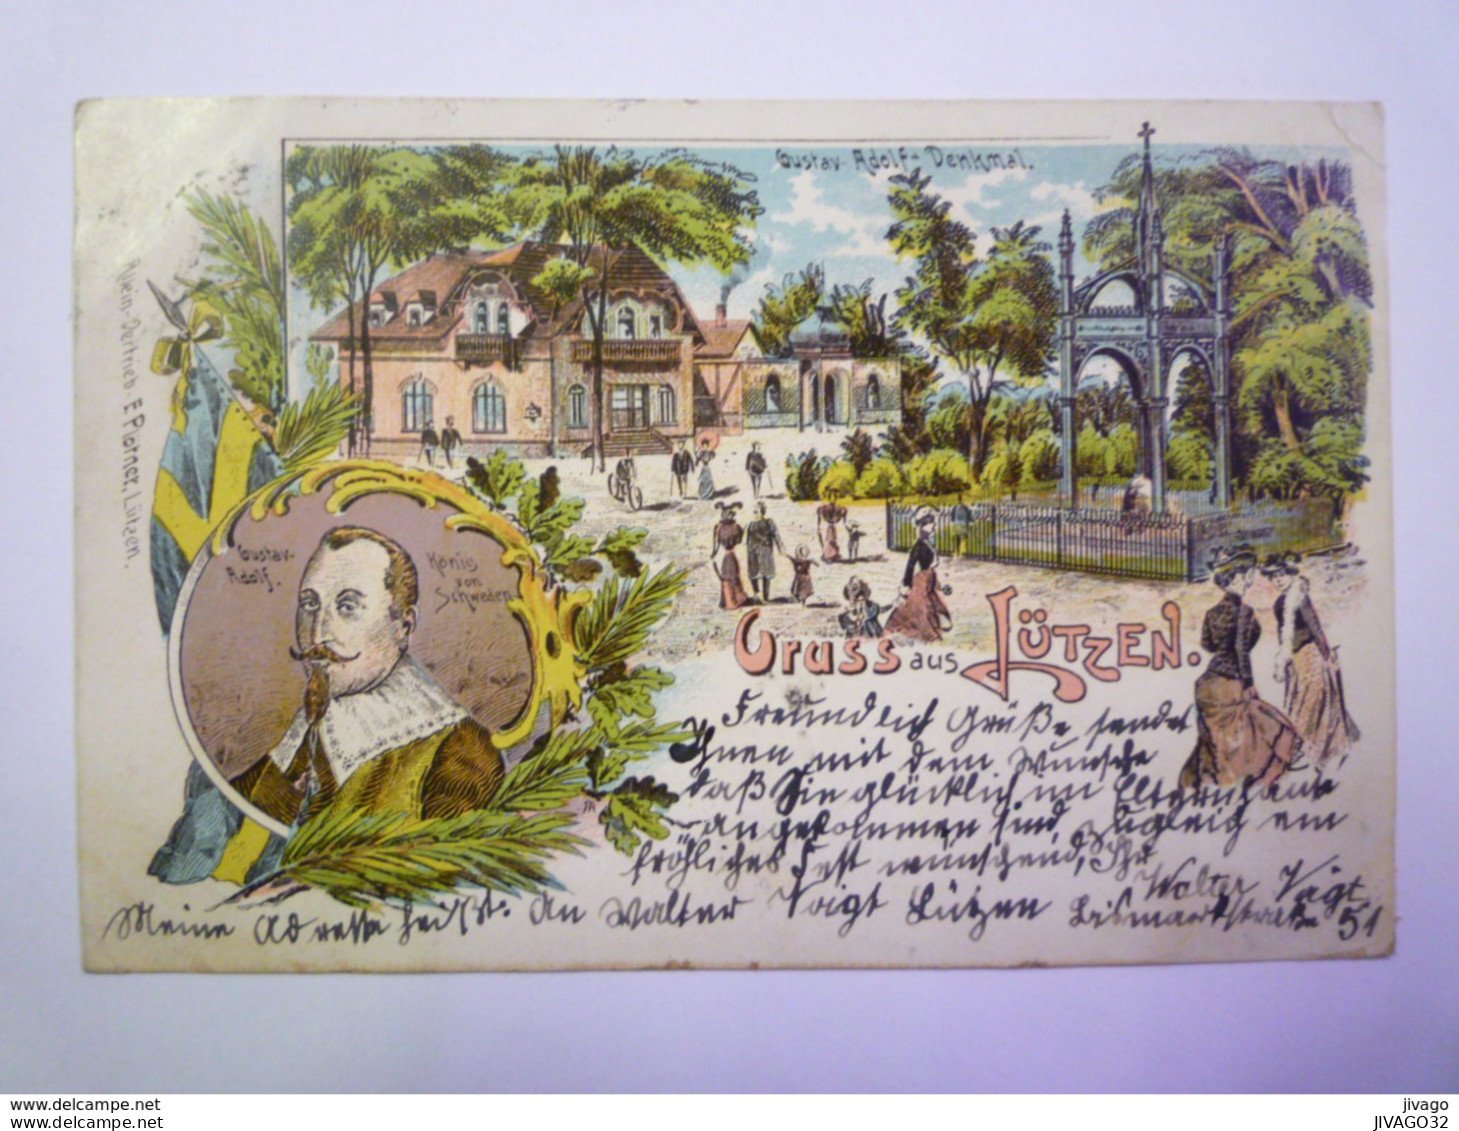 Gustav Adolf-Denkmal.
Allein-Vertrieb E. Plorner, Lützen.
Gustav-
Adolf.
König
von
Schweden
Gruss aus LÜTZEN.
Freundlich Grüße sendet
Ihnen mit dem Wunsche
daß Sie glücklich im Elternhause
angekommen sind, Zugleich ein
fröhliches Fest wünschend, Ihr
Walter Voigt
Meine Adresse heißt: An Walter Voigt Lützen Bismarkstraße 51
jivago
JIVAGO32